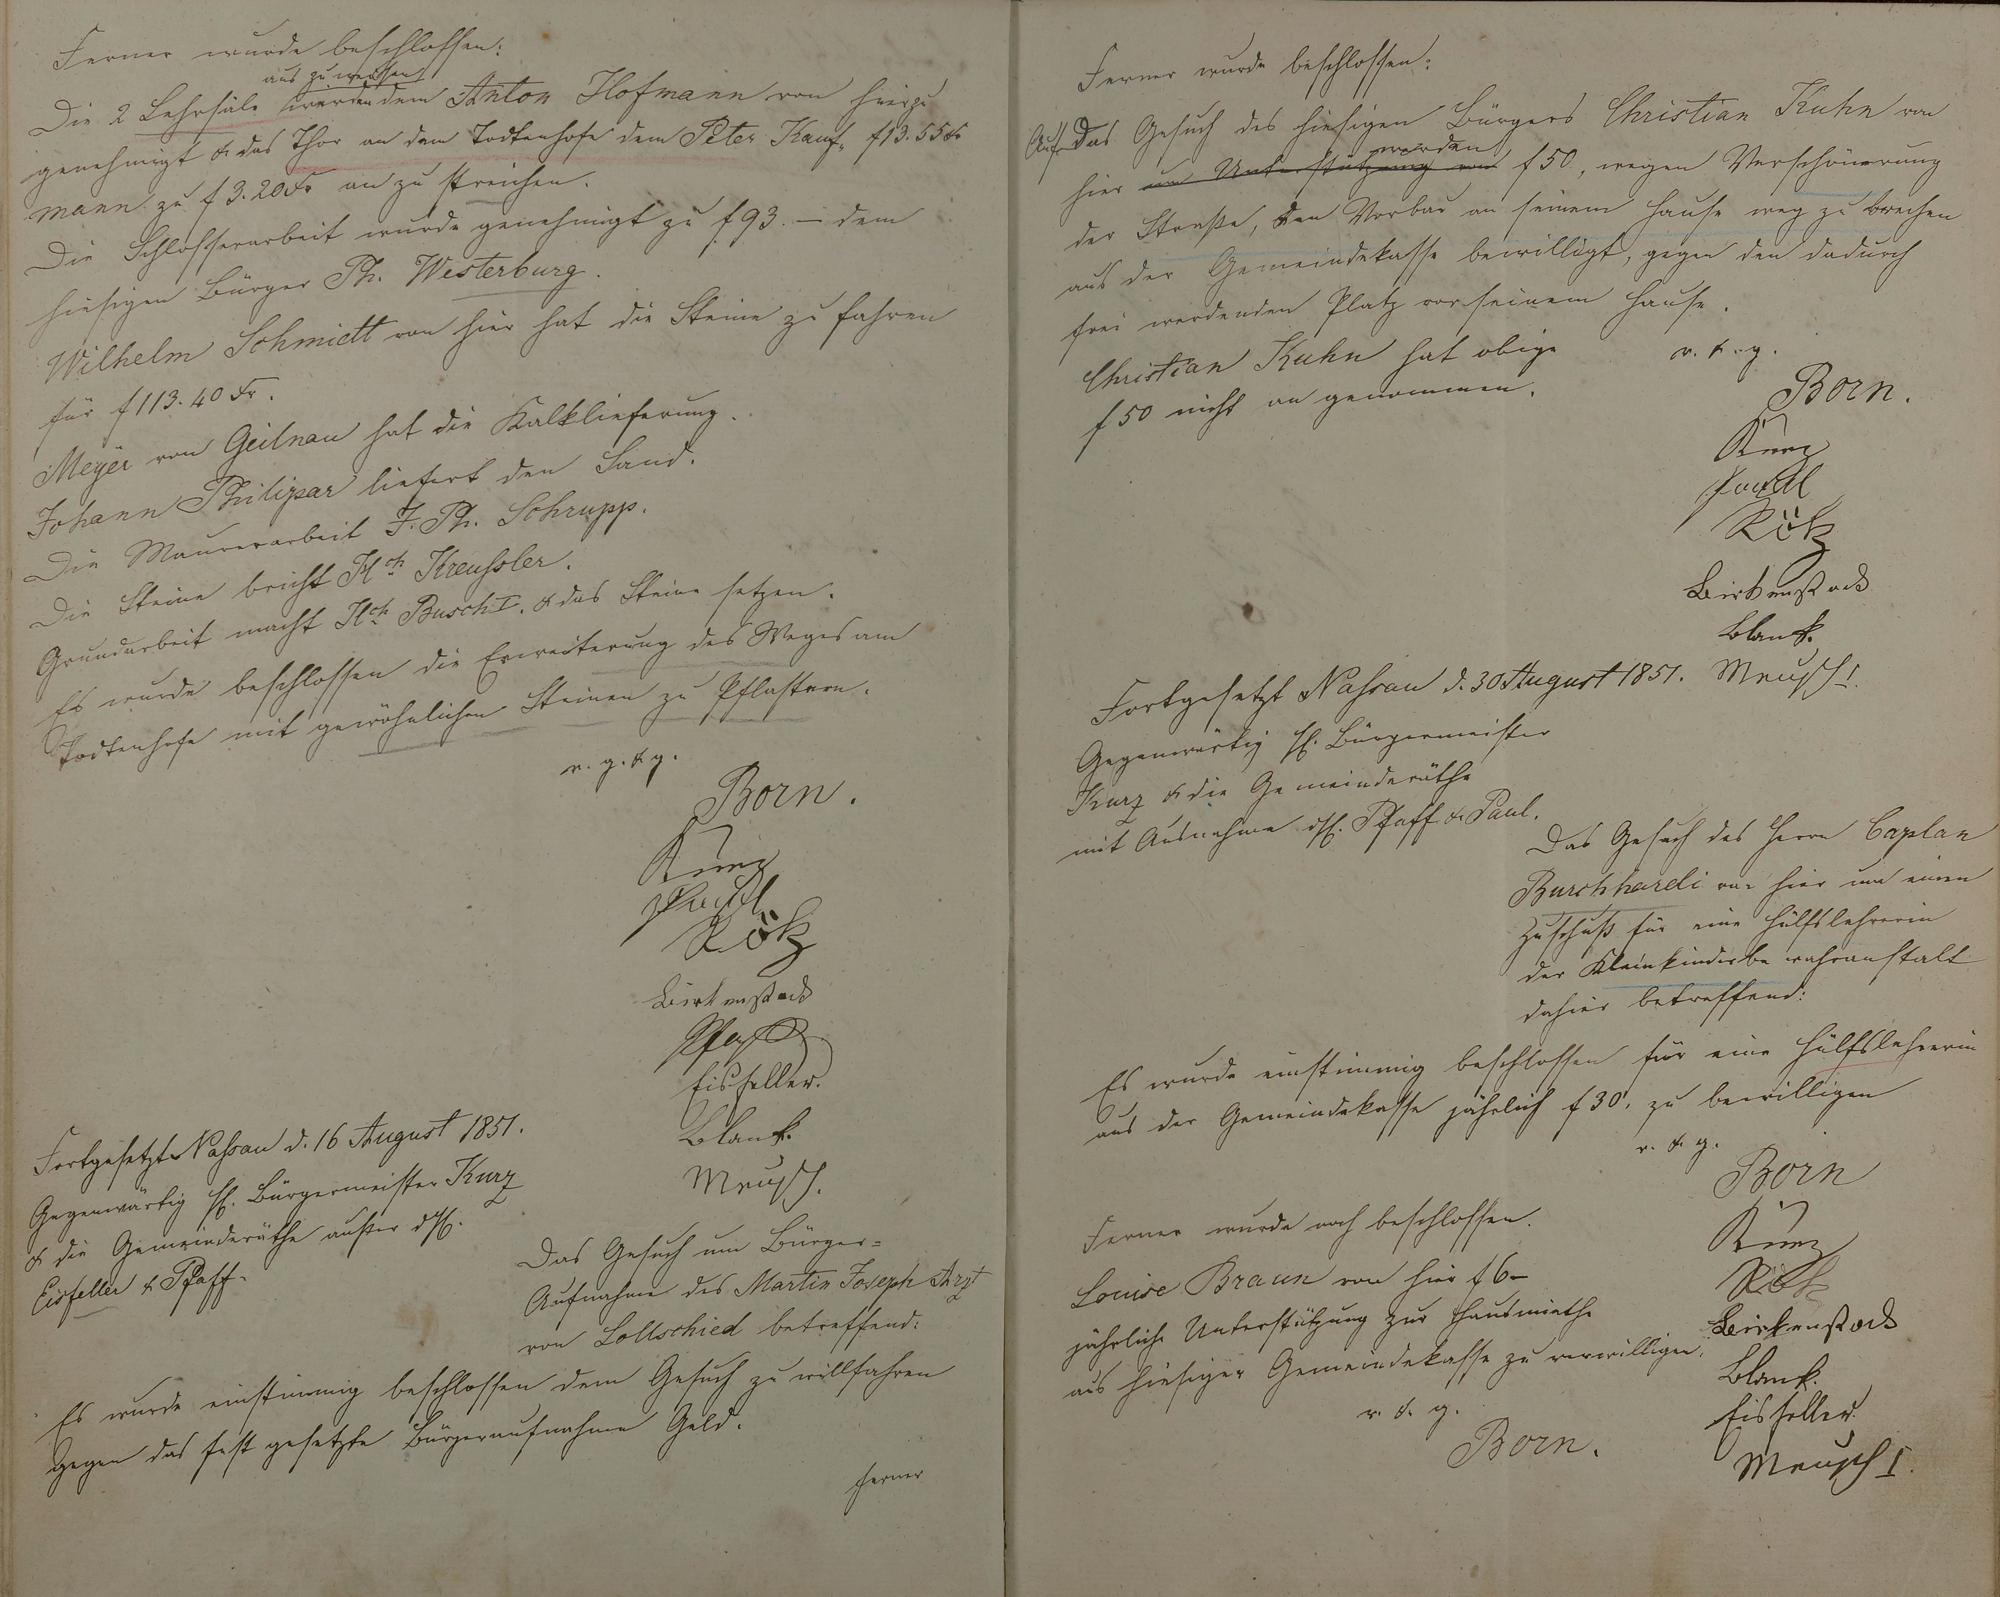 Ferner wurde beschlossen:
aus zu weissen
Die 2 Lehrsäle werden dem Anton Hofmann von hier zu
genehmigt & das Thor an dem Todtenhofe dem Peter Kauf„ f13.55 Xr
mann zu f 3.20 Xr an zu streichen.
Die Schlosserarbeit wurde genehmigt zu f 93. – dem
hiesigen Bürger Ph. Westerburg.
Wilhelm Schmidt von hier hat die Steine zu fahren
für f 113.40 Xr.
Meyer von Geilnau hat die Kalklieferung.
Johann Philipsar liefert den Sand.
Die Maurerarbeit F. Ph. Schrupp.
Die Steine bricht Hch Kreussler.
Grundarbeit macht Hch Busch I. & das Steine setzen.
Es wurde beschlossen die Erweiterung des Weges am
Todtenhofe mit gewöhnlichen Steinen zu Pflastern.
v. g. & g.
Born.
Kurz
Paul
Rötz
Birkenstock
Pfaff
Eisfeller.
Blank.
Meusch.
Fortgesetzt Nassau d. 16 August 1851.
Gegenwärtig H. Bürgermeister Kurz
& die Gemeinderäthe außer dH.
Eisfeller & Pfaff.
Das Gesuch um Bürger=
Aufnahme des Martin Joseph Arzt
von Lollschied betreffend:
Es wurde einstimmig beschlossen dem Gesuch zu willfahren
gegen das fest gesetzte Bürgeraufnahme Geld.
ferner
Ferner wurde beschlossen:
Auf Das Gesuch des hiesigen Bürgers Christian Kuhn von
werden
hier um Unterstützung von f 50, wegen Verschönerung
der Straße, den Vorbau an seinem Hause weg zu brechen
aus der Gemeindekasse bewilligt, gegen den dadurch
frei werdenden Platz vor seinem Hause.
Christian Kuhn hat obige
f 50 nicht an genommen.
v. & g.
Born.
Kurz
Paul
Rötz
Birkenstock
Blank.
Meusch I.
Fortgesetzt Nassau d. 30 August 1851.
Gegenwärtig H. Bürgermeister
Kurz & die Gemeinderäthe
mit Ausnahme dH. Pfaff & Paul.
Das Gesuch des Herrn Caplan
Burchhardi von hier um einen
Zuschuß für eine Hülfslehrerin
der Kleinkinderbewahranstalt
dahier betreffend:
Es wurde einstimmig beschlossen für eine Hülfslehrerin
aus der Gemeindekasse jährlich f 30, zu bewilligen
v. & g.
Born
Kurz
Rötz
Birkenstock
Blank.
Eisfeller.
Meusch I.
Ferner wurde noch beschlossen.
Louise Braun von hier f 6–
jährliche Unterstützung zur Hausmiethe
aus hiesiger Gemeindekasse zu verwilligen.
v. & g.
Born.